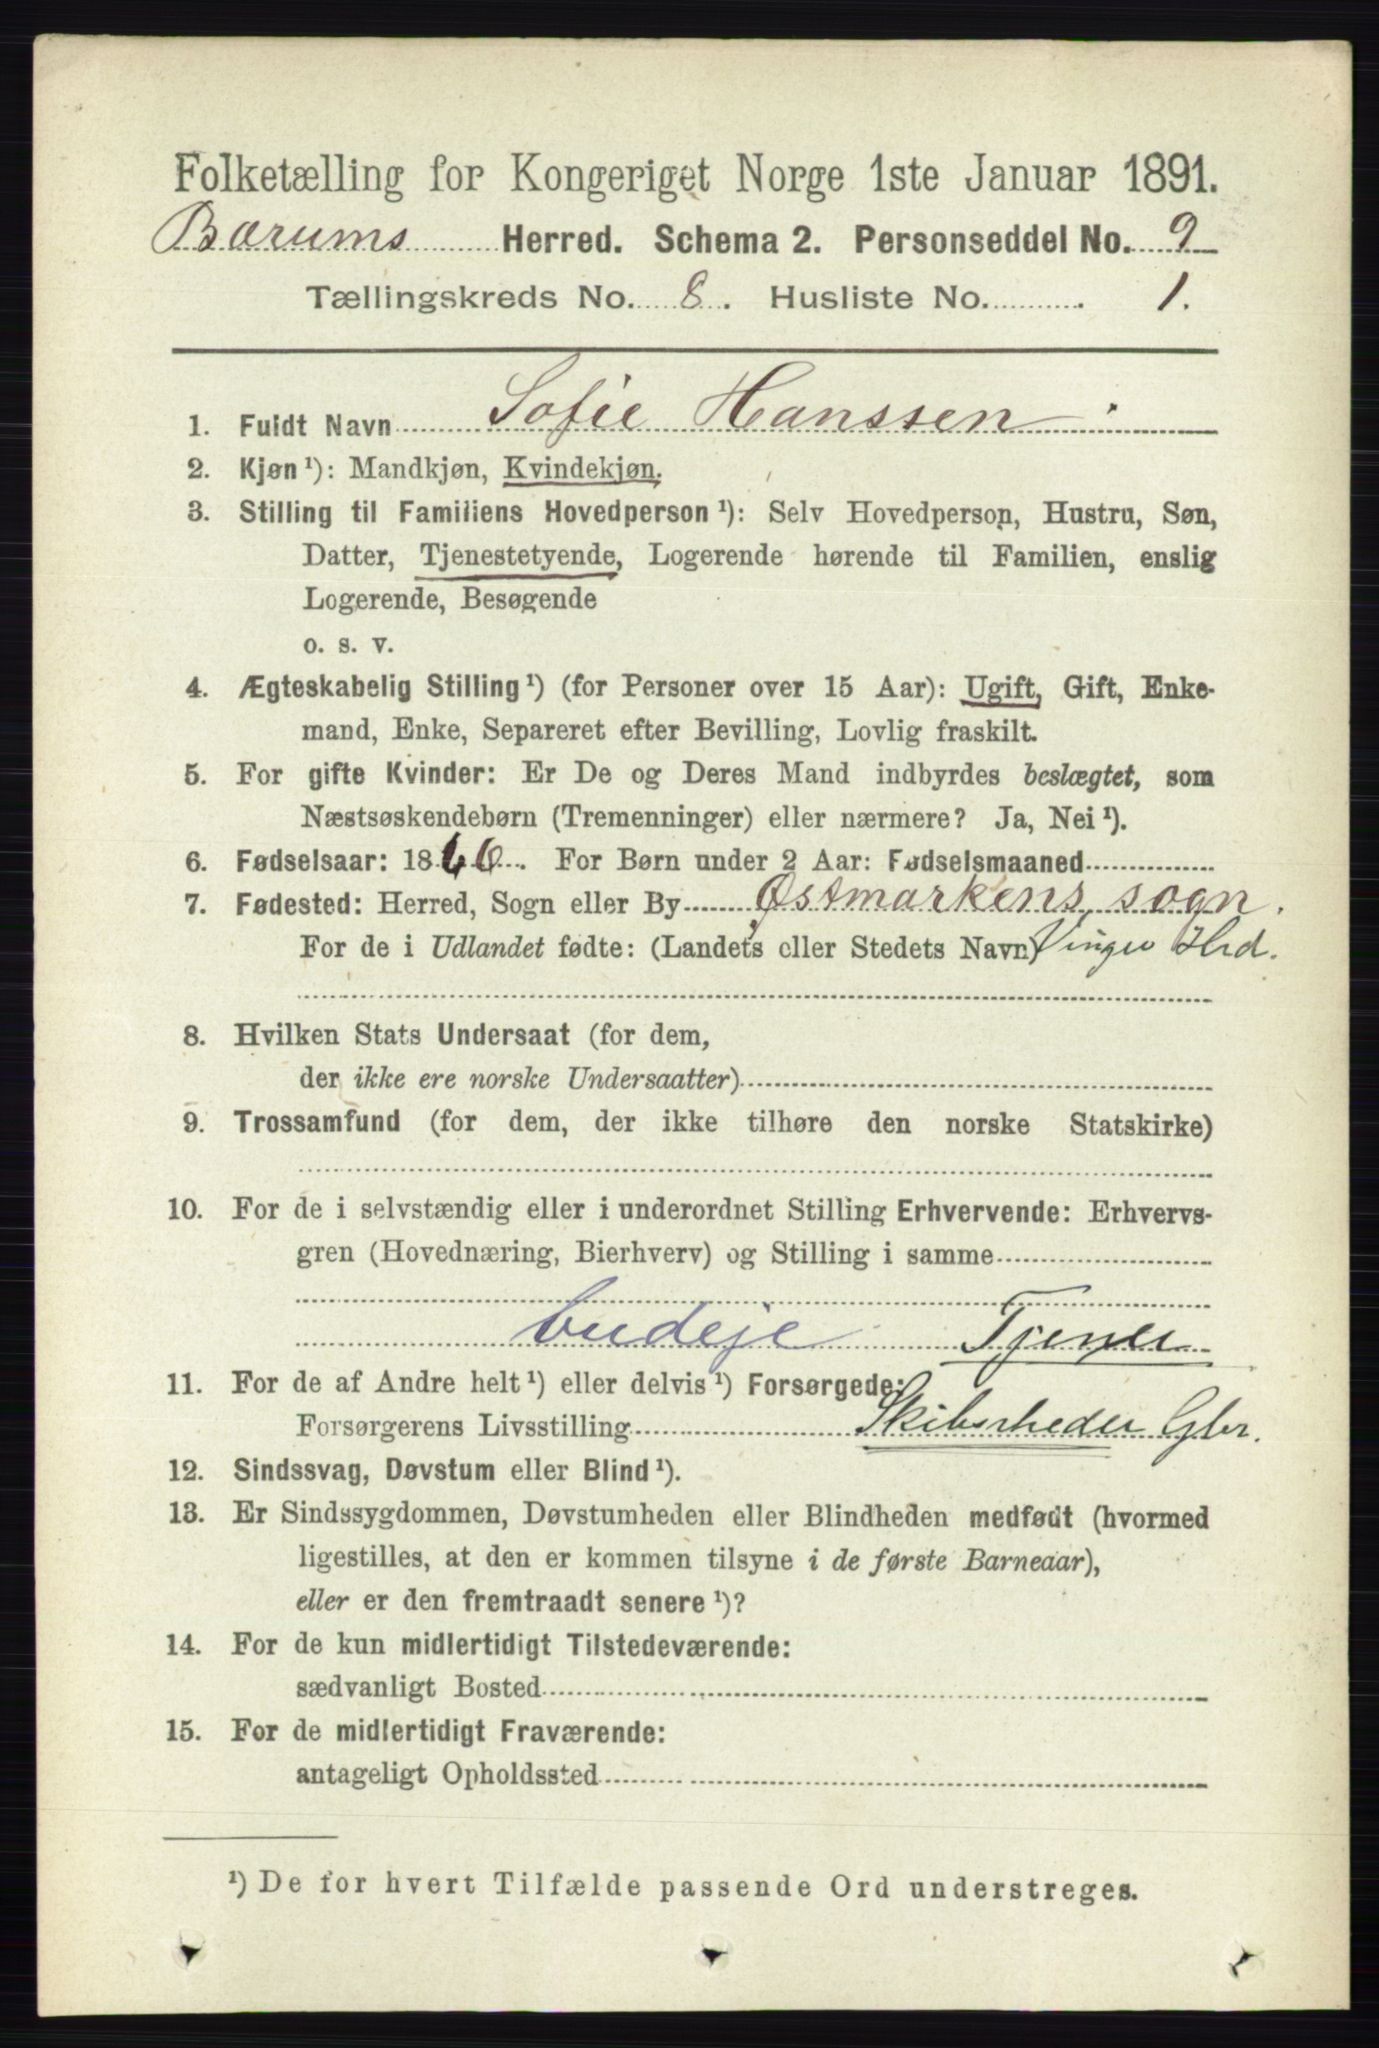 Folketælling for Kongeriget Norge 1ste Januar 1891.
Bærums Herred. Schema 2. Personseddel No. 9
Tællingskreds No. 8. Husliste No. 1.
1. Fuldt Navn Sofie Hanssen
2. Kjøn ¹): Mandkjøn, Kvindekjøn.
3. Stilling til Familiens Hovedperson ¹): Selv Hovedperson, Hustru, Søn,
Datter, Tjenestetyende, Logerende hørende til Familien, enslig
Logerende, Besøgende
o. s. v.
4. Ægteskabelig Stilling ¹) (for Personer over 15 Aar): Ugift, Gift, Enke-
mand, Enke, Separeret efter Bevilling, Lovlig fraskilt.
5. For gifte Kvinder: Er De og Deres Mand indbyrdes beslægtet, som
Næstsøskendebørn (Tremenninger) eller nærmere? Ja, Nei ¹).
6. Fødselsaar: 1866. For Børn under 2 Aar: Fødselsmaaned
7. Fødested: Herred, Sogn eller By Østmarkens sogn.
For de i Udlandet fødte: (Landets eller Stedets Navn) Vinger Hrd.
8. Hvilken Stats Undersaat (for dem,
der ikke ere norske Undersaatter)
9. Trossamfund (for dem, der ikke tilhøre den norske Statskirke)
10. For de i selvstændig eller i underordnet Stilling Erhvervende: Erhvervs-
gren (Hovednæring, Bierhverv) og Stilling i samme
budeje Tjener
11. For de af Andre helt ¹) eller delvis ¹) Forsørgede:
Forsørgerens Livsstilling Skibsrheder Gbr.
12. Sindssvag, Døvstum eller Blind ¹).
13. Er Sindssygdommen, Døvstumheden eller Blindheden medfødt (hvormed
ligestilles, at den er kommen tilsyne i de første Barneaar),
eller er den fremtraadt senere ¹)?
14. For de kun midlertidigt Tilstedeværende:
sædvanligt Bosted
15. For de midlertidigt Fraværende:
antageligt Opholdssted
¹) De for hvert Tilfælde passende Ord understreges.